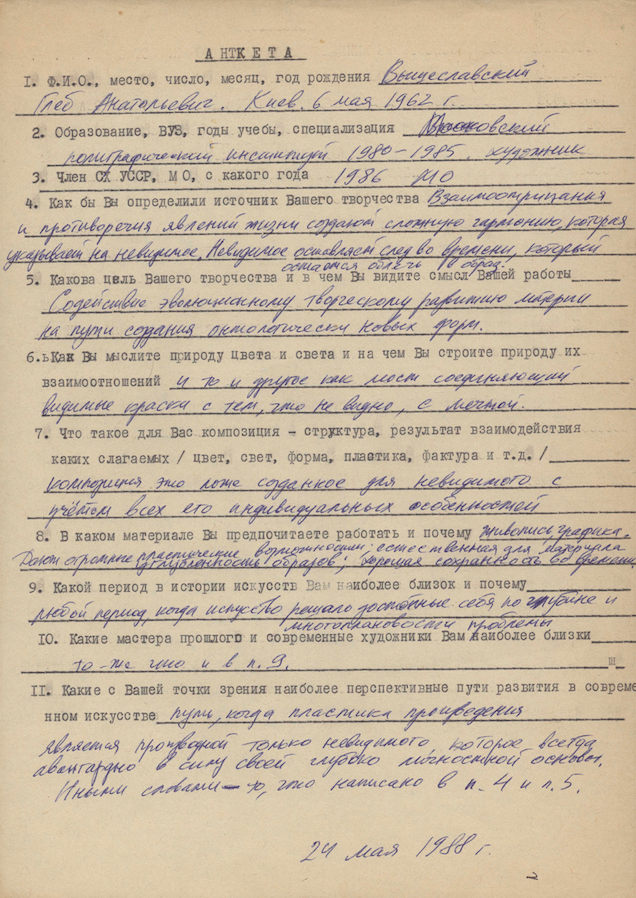 АНТКЕТА
I. Ф.И.О., место, число, месяц, год рождения Вышеславский
Глеб Анатольевич. Киев. 6 мая 1962 г.
2. Образование, ВУЗ, годы учебы, специализация Московский
полиграфический институт 1980-1985. художник
3. Член СХ УССР, М О, с какого года 1986 МО
4. Как бы Вы определили источник Вашего творчества Взаимоотрицания
и противоречия явлений жизни создают сложную гармонию, которая
указывает на невидимое. Невидимое оставляет след во времени, который
остаётся облечь в образ.
5. Какова цель Вашего творчества и в чем Вы видите смысл Вашей работы
Содействие эволюционному творческому развитию материи
на пути создания онтологически новых форм.
6. Как Вы мыслите природу цвета и света и на чем Вы строите природу их
взаимоотношений и то и другое как мост соединяющий
видимые краски с тем, что не видно, с мечтой.
7. Что такое для Вас композиция - структура, результат взаимодействия
каких слагаемых / цвет, свет, форма, пластика, фактура и т.д. /
композиция это ложе созданное для невидимого с
учётом всех его индивидуальных особенностей
8. В каком материале Вы предпочитаете работать и почему живопись графика.
Дают огромные пластические возможности; естественная для материала
образов; хорошая сохранность во времени
9. Какой период в истории искусств Вам наиболее близок и почему
любой период, когда искусство решало достойные себя по глубине и
многоплановости проблемы
IO. Какие мастера прошлого и современные художники Вам наиболее близки
то-же что и в п. 9.
ш
II. Какие с Вашей точки зрения наиболее перспективные пути развития в совреме
нном искусстве путь, когда пластика произведения
является производной только невидимого, которое всегда
авангардно в силу своей глубоко личностной основы.
Иными словами - то, что написано в п. 4 и п. 5.
24 мая 1988 г.